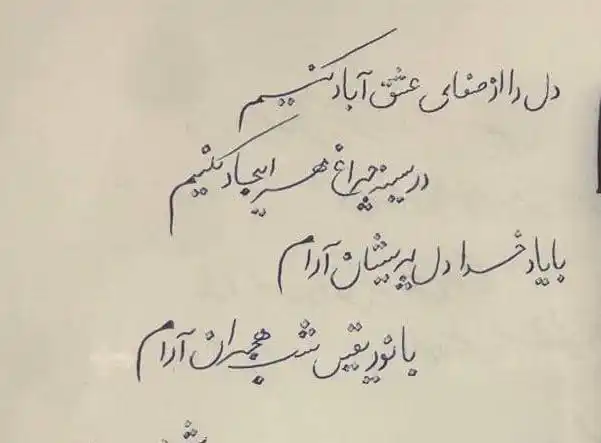 دل را از صفای عشق آباد کنیم
در سینه چراغ مهر ایجاد کنیم
با یاد خدا دل پریشان آرام
با نور یقین شب هجران آرام